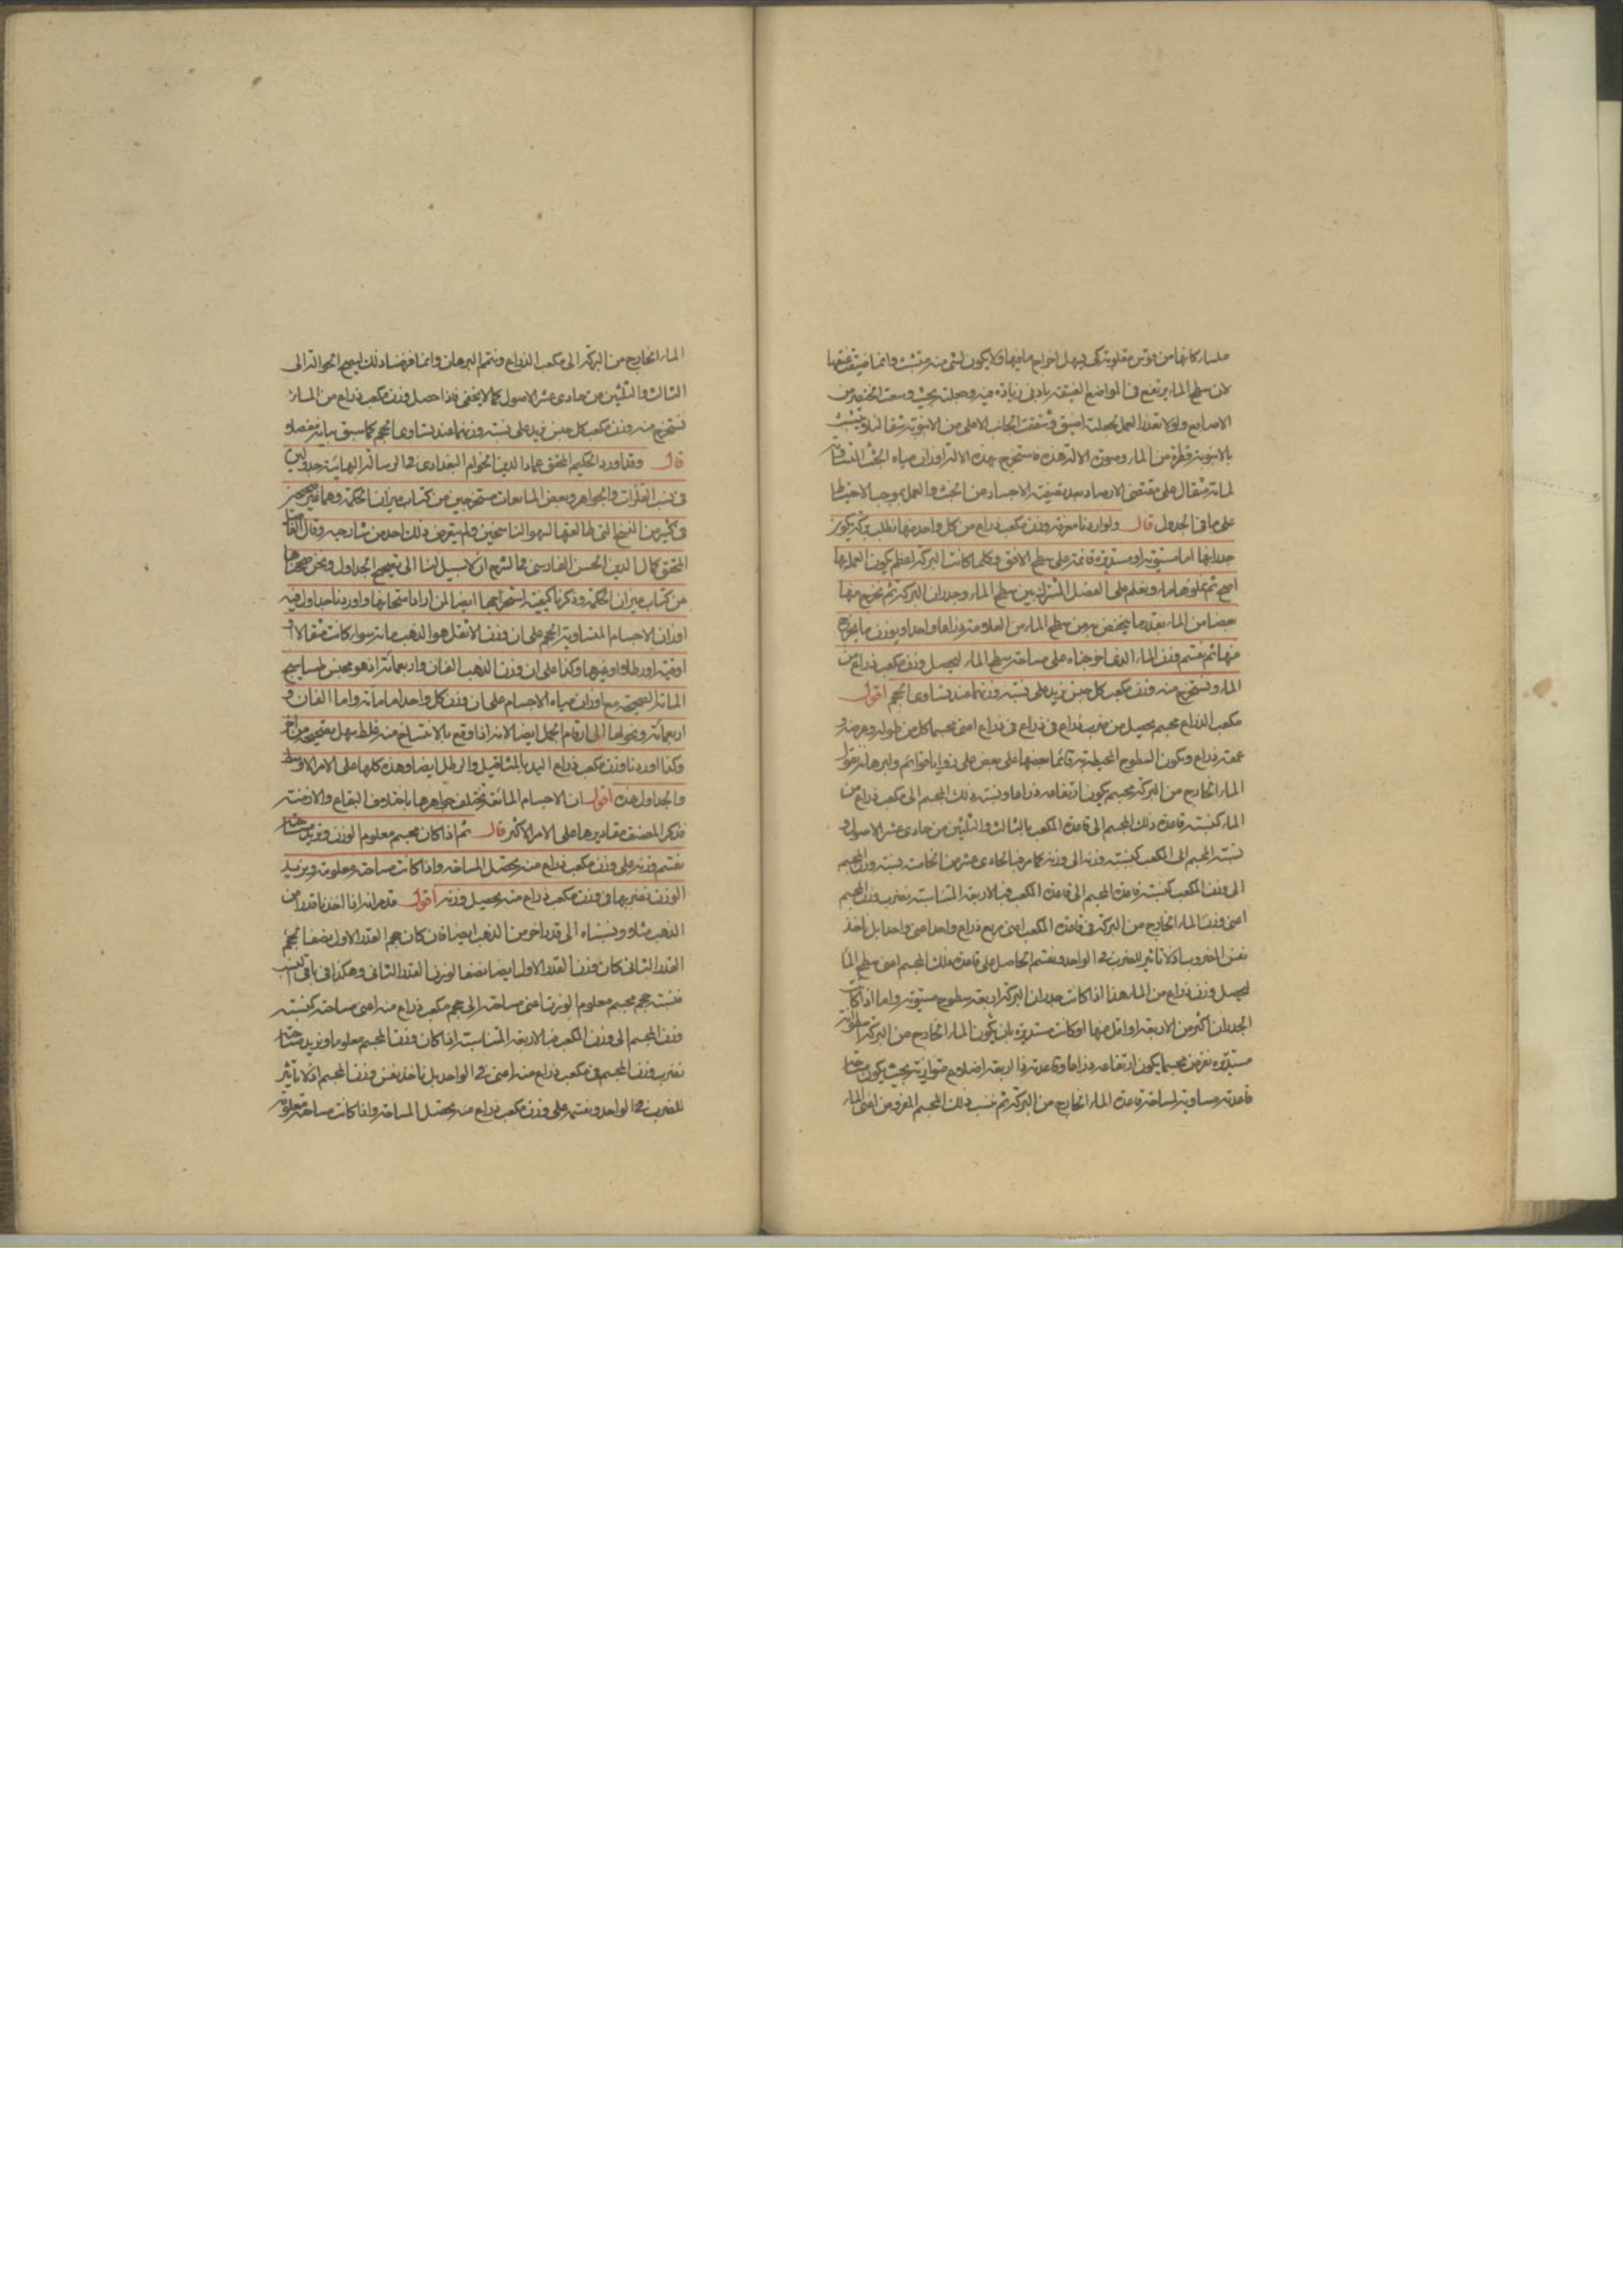 ملساء كانها من قوس مقلوبة كى يسهل اخراج ما فيها ولا يكون لشئ منه متشبث وانما ضيقت عنقها
لان سطح الماء يرتفع فى المواضع الضيقة بادنى زيادة فيه وجعلته بحيث وسعت الخنصر من
الاصابع ولولا تعذر العمل لجعلته اضيق وثقبت الجانب الاعلى من الانبوبة ثقبا لئلا يتشبث
بالانبوبة قطرة من الماء وصورة الالة هذه فاستخرج بهذه الالة اوزان مياه الجثث المتساوية
لمائة مثقال على مقتضى الارصاد بعد تصفية الاجساد من الخبث والعمل بموجب الاحتياط
على ما فى الجدول قال ولو اردنا معرفة وزن مكعب ذراع من كل واحد منها نطلب بركة يكون
جدرانها اما مستوية او مستديرة قائمة على سطح الافق وكلما كانت البركة اعظم يكون العمل بها
اصح ثم نملؤها ماء ونعلم على الفصل المشترك بين سطح الماء وجدران البركة ثم نخرج منها
بعضا من الماء بقدر ما ينخفض به من سطح الماء من العلامة ذراعا واحدا ويوزن ما يخرج
منها ثم نقسم وزن الماء الذى اخرجناه على مساحة سطح الماء ليحصل وزن مكعب ذراع من
الماء ونستخرج منه وزن مكعب كل جنس نريد على نسبة وزنهما عند تساوى الحجم اقول
مكعب الذراع مجسم يحصل من ضرب ذراع فى ذراع فى ذراع اعنى مجسما كل من طوله وعرضه و
عمقه ذراع وتكون السطوح المحيطة به قائما بعضها على بعض على زوايا قوائم ولبرهانه نقول
الماء الخارج من البركة مجسم يكون ارتفاعه ذراعا ونسبة ذلك المجسم الى مكعب ذراع من
الماء كنسبة قاعدة ذلك المجسم الى قاعدة المكعب بالثالث والثلثين من حادى عشر الاصول و
نسبة المجسم الى المكعب كنسبة وزنه الى وزنه كما مر فبالحادى عشر من الخامسة نسبة وزن المجسم
الى وزن المكعب كنسبة قاعدة المجسم الى قاعدة المكعب فبالاربعة المتناسبة نضرب وزن المجسم
اعنى وزن الماء الخارج من البركة فى قاعدة المكعب اعنى مربع ذراع واحد اعنى واحدا بل ناخذ
نفس المضروب اذ لا تاثير للضرب فى الواحد ونقسم الحاصل على قاعدة ذلك المجسم اعنى سطح الماء
ليحصل وزن ذراع من الماء هذا اذا كانت جدران البركة اربعة سطوح مستوية واما اذا كانت
الجدران اكثر من الاربعة او اقل منها او كانت مستديرة بان يكون الماء الخارج من البركة اسطوانة
مستديرة نفرض مجسما يكون ارتفاعه ذراعا وقاعدته ذا اربعة اضلاع متوازية بحيث يكون مساحة
قاعدته مساوية لمساحة قاعدة الماء الخارج من البركة ثم ننسب ذلك المجسم المفروض اعنى الماء
الماء الخارج من البركة الى مكعب الذراع ونتمم البرهان وانما فرضنا ذلك ليصح الحوالة الى
الثالث والثلثين من حادى عشر الاصول كما لا يخفى فاذا حصل وزن مكعب ذراع من الماء
نستخرج منه وزن مكعب كل جنس نريد على نسبة وزنهما عند تساوى الحجم كما سبق بيانه مفصلا
قال وقد اورد الحكيم المحقق عماد الدين الخوام البغدادى فى الرسالة البهائية جدولين
فى نسب الفلزات والجواهر وبعض المايعات مستخرجين من كتاب ميزان الحكمة وهما غير صحيحين
فى كثير من النسخ التى طالعتها لسهو الناسخين ولم يتعرض ذلك احد من شارحيه وقال الفاضل
المحقق كمال الدين الحسن الفارسى فى الشرح انه لا سبيل لنا الى تصحيح الجداول ونحن صححناها
من كتاب ميزان الحكمة وذكرنا كيفية استخراجها ايضا لمن اراد امتحانها واوردنا جداول فيه
اوزان الاجسام المتساوية الحجم على ان وزن الاثقل هو الذهب مائة سواء كانت مثقالا او
اوقية او رطلا او غيرها وكذا على ان وزن الذهب الفان واربعمائة اذ هو مجنس طساسيج
المائة الصحيحة مع اوزان مياه الاجسام على ان وزن كل واحد اما مائة واما الفان و
اربعمائة ونحولها الى ارقام الجمل ايضا لانه اذا وقع بالانتساخ منه غلط يسهل تصحيحه من اخر
وكذا اوردنا وزن مكعب ذراع اليد بالمثاقيل والرطل ايضا وهذه كلها على الامر الاوسط
والجداول هذه اقول ان الاجسام المائعة تختلف جواهرها باختلاف البقاع والازمنة
فذكر المصنف مقاديرها على الامر الاكثر قال ثم اذا كان مجسم معلوم الوزن ونريد مساحته
نقسم وزنه على وزن مكعب ذراع منه يحصل المساحة واذا كانت مساحته معلومة ونريد
الوزن نضربها فى وزن مكعب ذراع منه يحصل وزنه اقول قد مر انه اذا اخذنا قدرا من
الذهب مثلا ونسبناه الى قدر اخر من الذهب ايضا فان كان حجم القدر الاول نصفا لحجم
القدر الثانى كان وزن القدر الاول ايضا نصفا لوزن القدر الثانى وهكذا فى باقى النسب
فنسبة حجم مجسم معلوم الوزن اعنى مساحته الى حجم مكعب ذراع منه اعنى مساحته كنسبة
وزن المجسم الى وزن المكعب فبالاربعة المتناسبة اذا كان وزن المجسم معلوما ونريد مساحته
نضرب وزن المجسم فى مكعب ذراع منه اعنى فى الواحد بل ناخذ نفس وزن المجسم اذ لا تاثير
للضرب فى الواحد ونقسمه على وزن مكعب ذراع منه يحصل المساحة واذا كانت مساحته معلومة